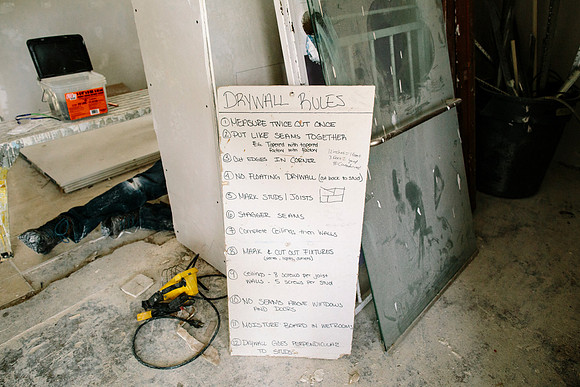 DRYWALL RULES
① MEASURE TWICE CUT ONCE
② PUT LIKE SEAMS TOGETHER
E.G. Tapered with tapered
Factory with factory
③ EDGES IN CORNER
④ NO FLOATING DRYWALL (cut back to stud)
⑤ MARK STUDS/JOISTS
⑥ STAGGER SEAMS
⑦ Complete Ceilings then WALLS
⑧ MARK & CUT OUT FIXTURES
⑨ CEILING - 8 SCREWS per joist
WALLS - 5 SCREWS per Stud
⑩ NO SEAMS ABOVE WINDOWS
AND DOORS
⑪ MOISTURE BOARD IN WETROOMS
⑫ DRYWALL GOES PERPENDICULAR
TO STUDS